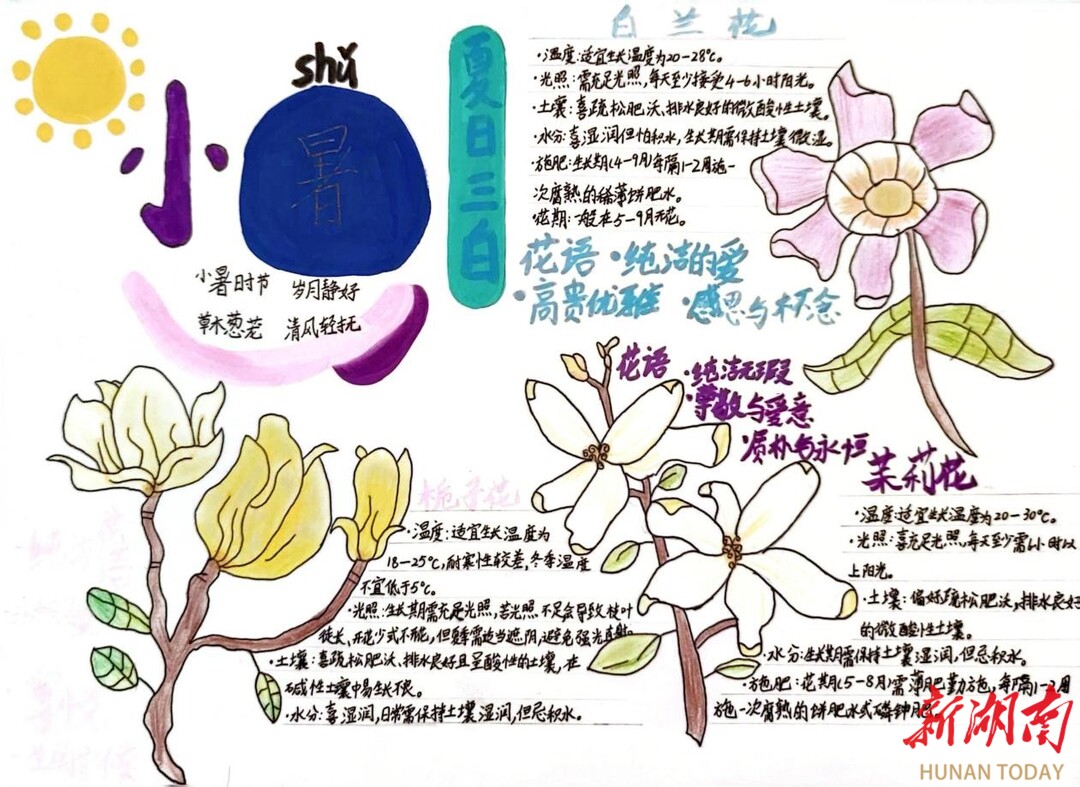 小暑
shǔ
小暑时节 岁月静好
草木葱茏 清风轻抚
夏日三白
白兰花
·温度:适宜生长温度为20-28℃。
·光照:需充足光照,每天至少接受4-6小时阳光。
·土壤:喜疏松肥沃,排水良好的微酸性土壤。
·水分:喜湿润但怕积水,生长期需保持土壤微湿。
·施肥:生长期(4-9月)每隔1-2月施一
次腐熟的稀薄饼肥水。
·花期:一般在5-9月开花。
花语·纯洁的爱
·高贵优雅 ·感恩与怀念
花语·纯洁无瑕
·尊敬与爱意
·质朴与永恒
茉莉花
·温度:适宜生长温度为20-30℃。
·光照:喜充足光照,每天至少需6小时以
上阳光。
·土壤:偏好疏松肥沃,排水良好
的微酸性土壤。
·水分:生长期需保持土壤湿润,但忌积水。
·施肥:花期(5-8月)需薄肥勤施,每隔1-2周
施一次腐熟的饼肥水或磷钾肥
栀子花
·温度:适宜生长温度为
18-25℃,耐寒性较差,冬季温度
不宜低于5℃。
·光照:生长期需充足光照,若光照不足会导致枝叶
徒长、开花少或不能,但夏季需适当遮阴,避免强光直射。
·土壤:喜疏松肥沃、排水良好且呈酸性的土壤,在
碱性土壤中易生长不良。
·水分:喜湿润,日常需保持土壤湿润,但忌积水。
新湖南
HUNAN TODAY